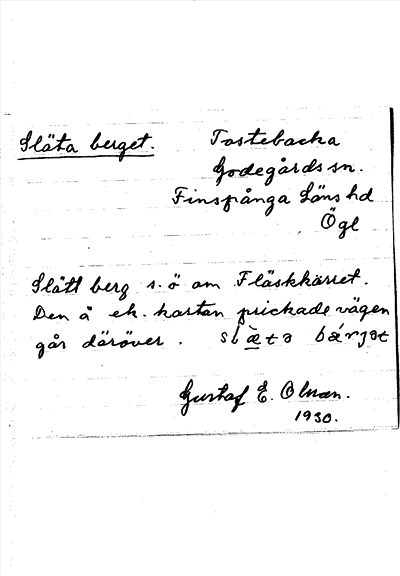 Släta berget.
Tostebacka
Godegårds sn.
Finspånga Läns hd
Ögl
Slätt berg s.ö om Fläskkärret.
Den å ek. kartan prickade vägen
går däröver.
Gustaf E. Olsson.
1930.